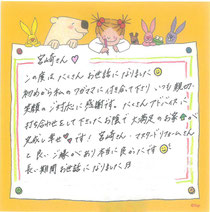 宮崎さん♡
この度はたくさんお世話になりました
初めから私のワガママに付き合って下さり いつも親切、
笑顔のご対応に感謝です。たくさんアドバイス、
打ち合わせをして下さったお陰で大満足のお家が
完成し幸せです！宮崎さん、マスターズリフォームさん
と良いご縁があり本当に良かったです
長い期間お世話になりました